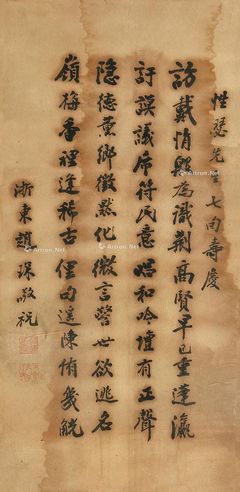 性瑟先生七旬壽慶
訪戴情殷為識荊高賢早已重蓬瀛
訏謨議席符民意唱和吟壇有正聲
隱德薰鄉徵默化微言警世欲逃名
嶺梅香裡逢稀古俚句遙陳侑幾觥
浙東趙琛敬祝